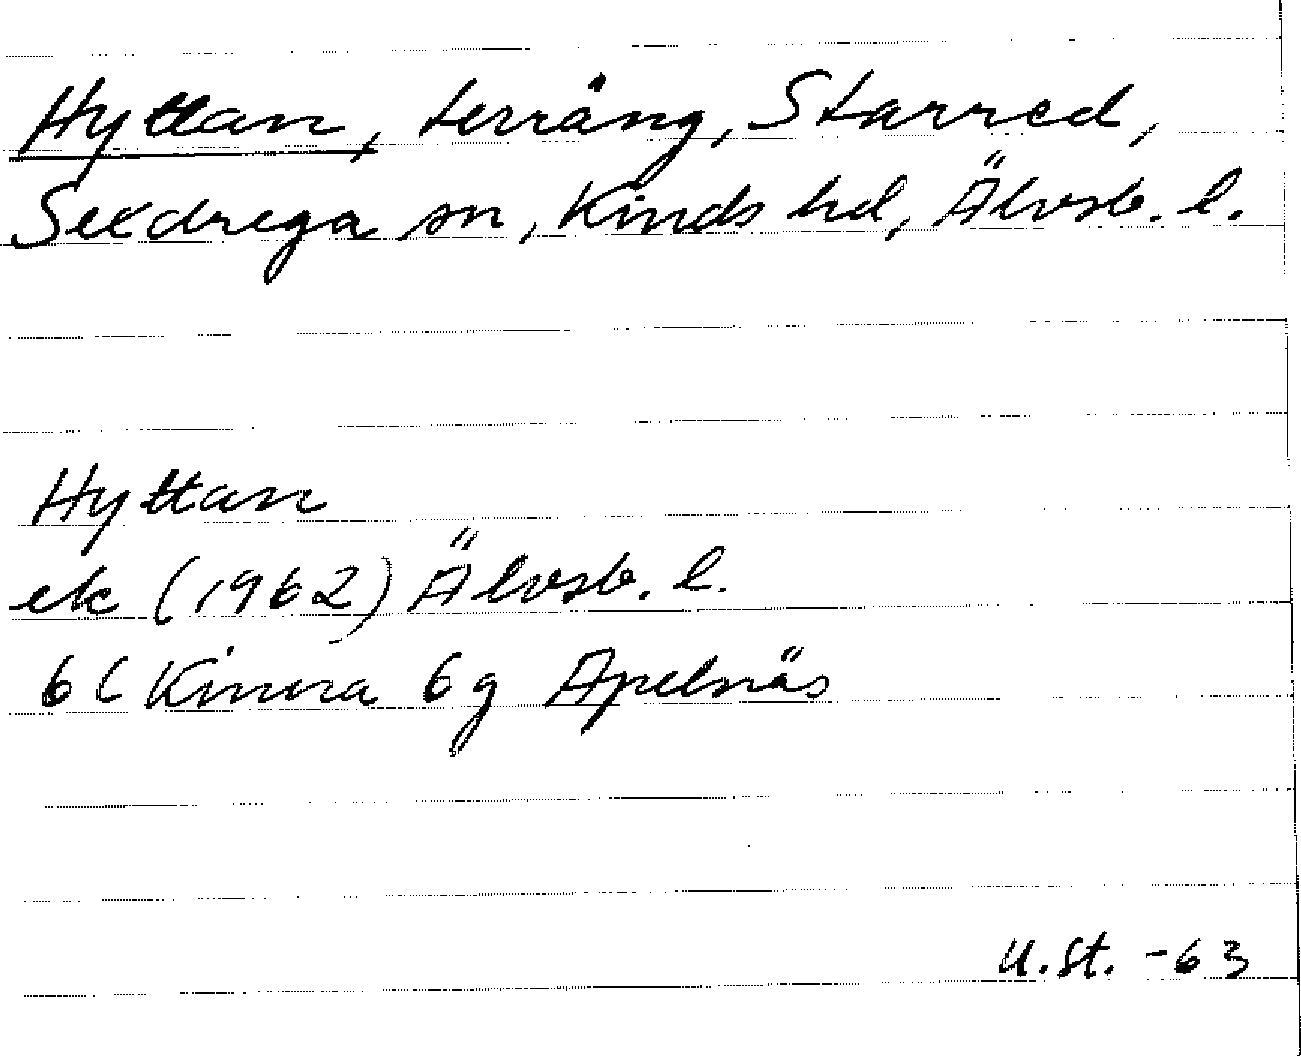 Hyttan, terräng, Starred,
Sexdrega sn, Kinds hd, Älvsb. l.
Hyttan
ek (1962) Älvsb. l.
6 C Kinna 6 g Apelnäs
U.St. -63